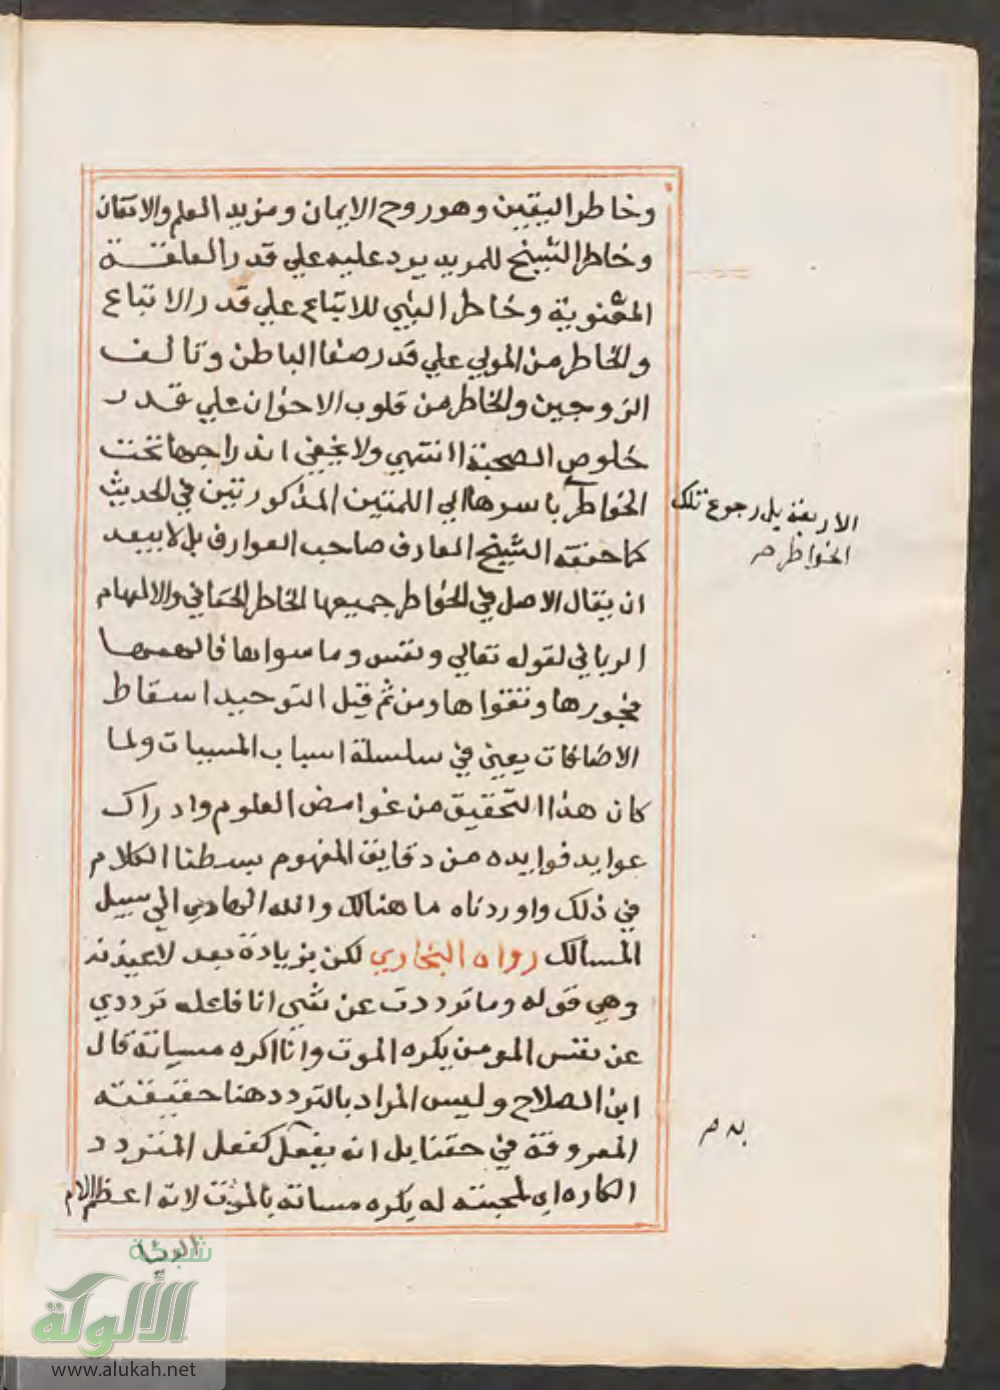 وخاطر اليقين وهو روح الايمان ومزيد العلم والاتقان
وخاطر الشيخ للمريد يرد عليه علي قدر العلقة
المعنوية وخاطر النبي للاتباع علي قدر الاتباع
والخاطر من المولي علي قدر صفا الباطن وتالف
الزوجين والخاطر من قلوب الاخوان علي قدر
خلوص الصحبة انتهي ولا يخفي اندراجها تحت
الخواطر باسرها الي اللمتين المذكورتين في الحديث
كما حققه الشيخ العارف صاحب العوارف بل لا يبعد
ان يقال الاصل في الخواطر جميعها الخاطر الحقاني والالهام
الرباني لقوله تعالي ونفس وما سواها فالهمها
فجورها وتقواها ومن ثم قيل التوحيد اسقاط
الاضافات يعني في سلسلة اسباب المسببات ولما
كان هذا التحقيق من غوامض العلوم وادراك
عوايد فوايده من دقايق المفهوم بسطنا الكلام
في ذلك واوردناه ما هنالك والله الهادي الي سبيل
المسالك رواه البخاري لكن بزيادة بعد لاعيذنه
وهي قوله وما ترددت عن شي انا فاعله ترددي
عن نفس المومن يكره الموت وانا اكره مساته قال
ابن الصلاح وليس المراد بالتردد هنا حقيقته
المعروفة في حقنا بل انه يفعل كفعل المتردد
الكاره اي لمحبته له يكره مساته بالموت لانه اعظم الام
الدنيا
الاربعة بل رجوع تلك
الخواطر صح
به م
شبكة
الألوكة
www.alukah.net